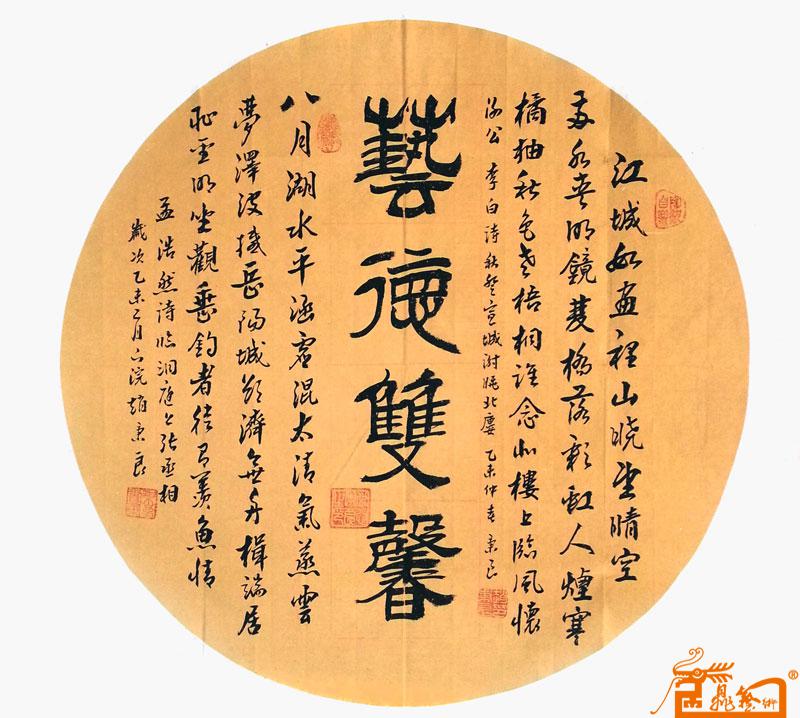 江城如畫裡山曉望晴空
兩水夾明鏡雙橋落彩虹人煙寒
橘柚秋色老梧桐誰念北樓上臨風懷
謝公 李白詩秋登宣城謝朓北樓 乙未仲春 秉良
藝德雙馨
八月湖水平涵虛混太清氣蒸雲
夢澤波撼岳陽城欲濟無舟楫端居
恥聖明坐觀垂釣者徒有羨魚情
孟浩然詩臨洞庭上張丞相
歲次乙未二月上浣趙秉良